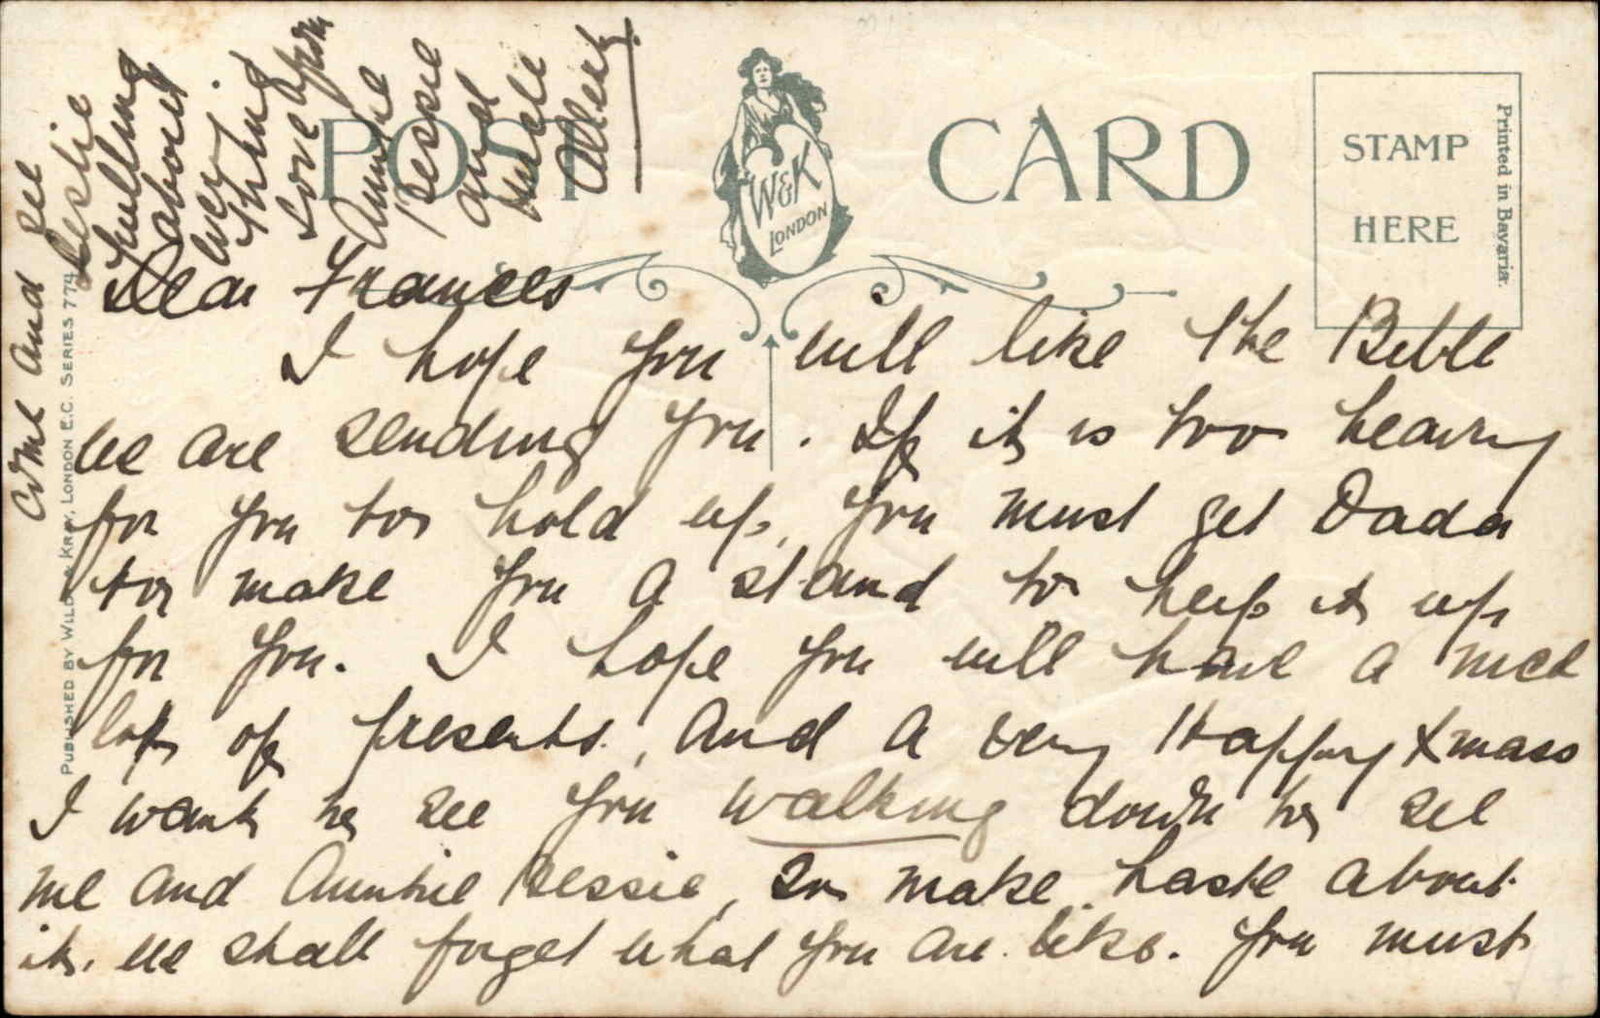 POST CARD
W&K
LONDON
STAMP
HERE
Printed in Bavaria.
PUBLISHED BY WILDT & KRAY, LONDON E.C. SERIES 774
Dear Frances
I hope you will like the Bible
we are sending you. If it is too heavy
for you to hold up, you must get Dada
to make you a stand to keep it up
for you. I hope you will have a nice
lot of presents, and a very Happy Xmass
I want to see you walking down to see
me and Auntie Bessie, so make haste about
it. we shall forget what you are like. You must
come and see
Leslie
trulling
about
every
thing
Love from
Auntie
Bessie
and
Uncle
Albert